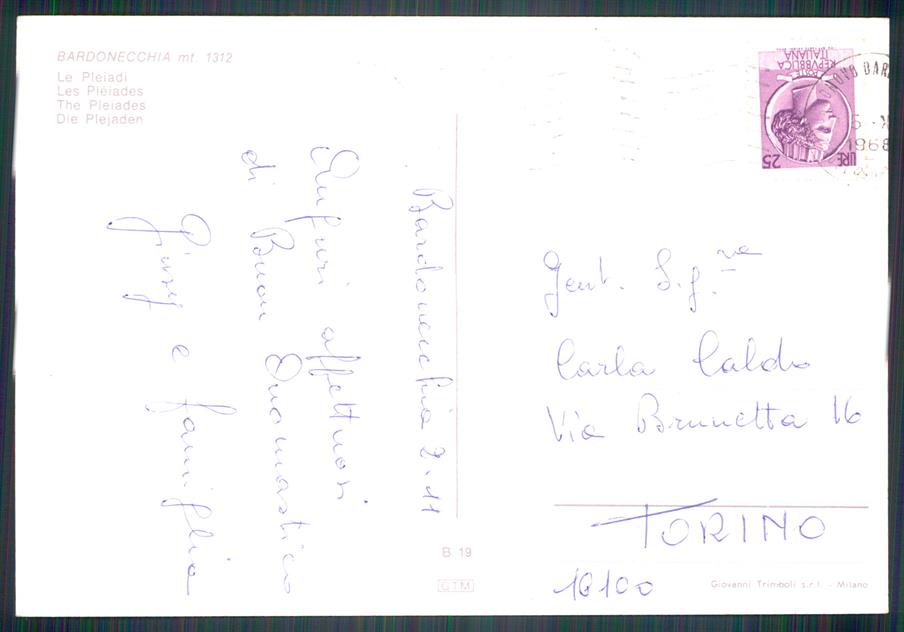 BARDONECCHIA mt. 1312
Le Pleiadi
Les Pléiades
The Pleiades
Die Plejaden
Bardonecchia 2.11
Auguri affettuosi
di Buon Onomastico
Giusy e famiglia
POSTE
REPVBBLICA
ITALIANA
LIRE 25
1968
Gent. Sig.na
Carla Caldo
Via Brunetta 16
TORINO
10100
B 19
GTM
Giovanni Trimboli s.r.l. - Milano